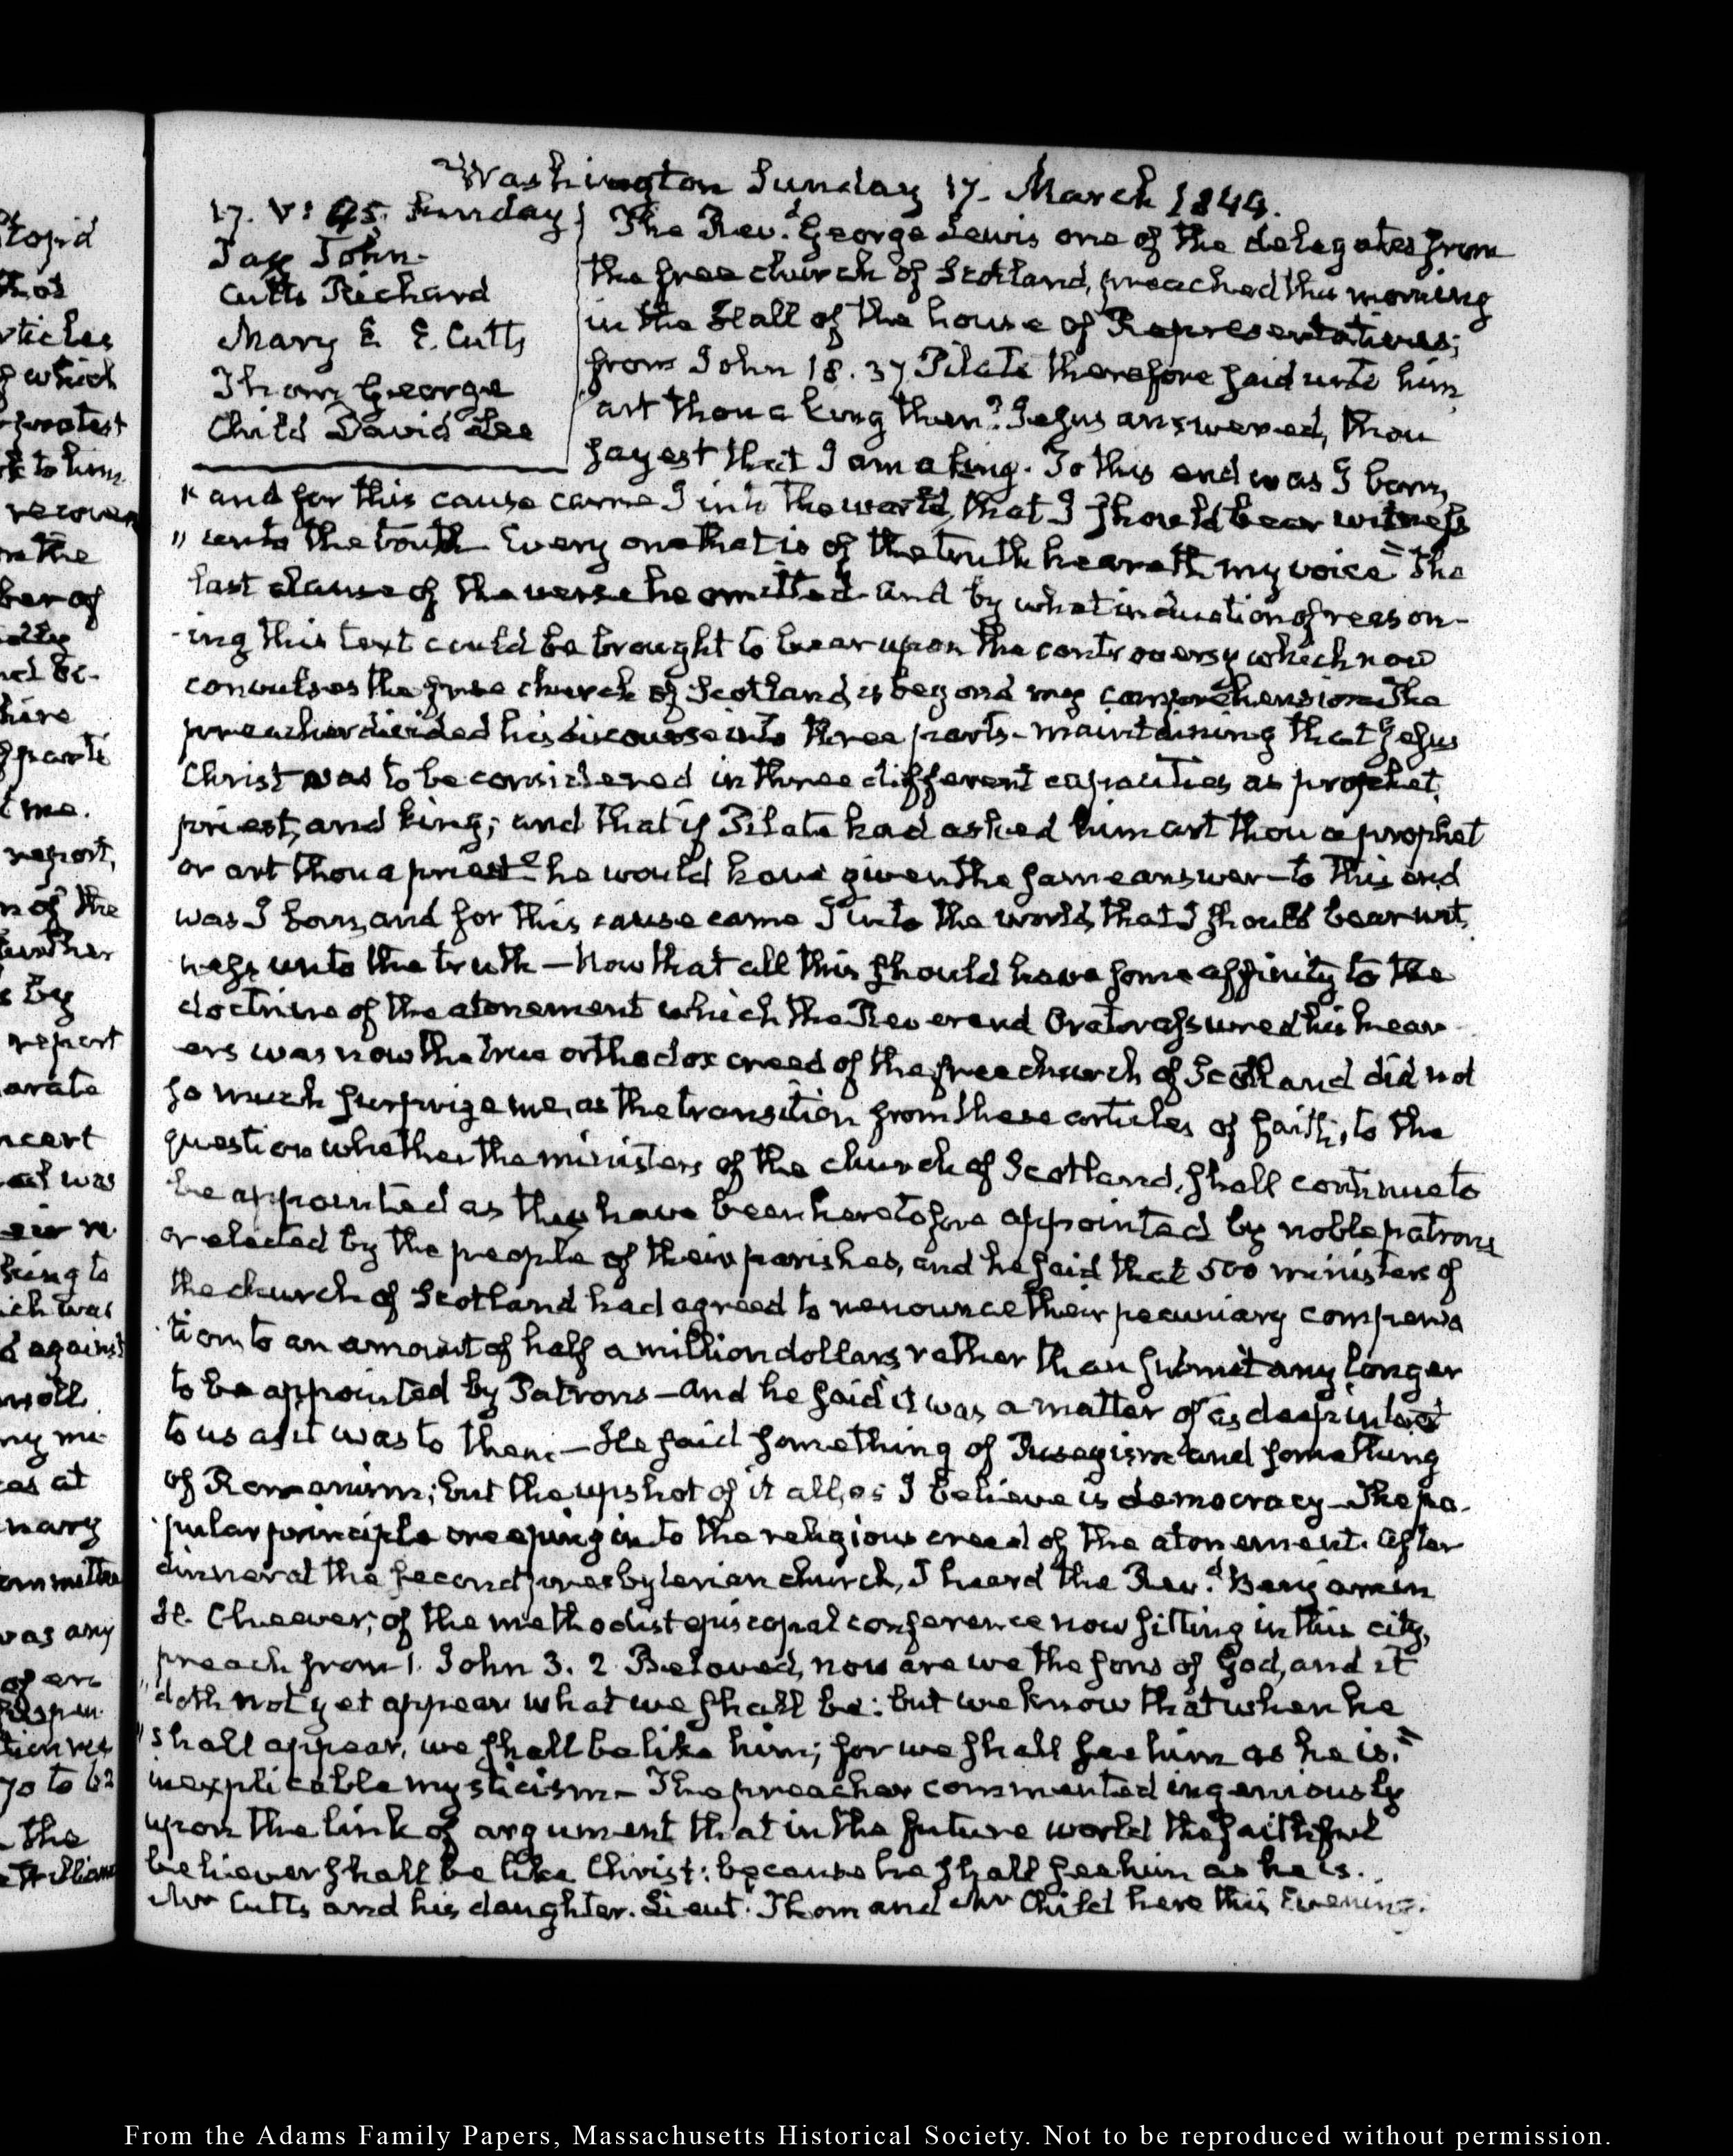 Washington Sunday 17. March 1844.
17. V: 45. Sunday
Jay John.
Cutts Richard
Mary E. E. Cutts
Thom George
Child David Lee
The Revd. George Lewis one of the delegates from
the free church of Scotland, preached this morning
in the Hall of the house of Representatives;
from John 18. 37 Pilate therefore said unto him,
"art thou a king then? Jesus answered, thou
sayest that I am a king. To this end was I born,
"and for this cause came I into the world, that I should bear witness
"unto the truth. Every one that is of the truth heareth my voice" The
last clause of the verse he omitted and by what induction of reason-
-ing this text could be brought to bear upon the controversy which now
convulses the free church of Scotland, is beyond my comprehension. The
preacher divided his discourse into three parts - maintaining that Jesus
Christ was to be considered in three different capacities as prophet,
priest, and king; and that if Pilate had asked him art thou a prophet
or art thou a priest? he would have given the same answer - to this end
was I born, and for this cause came I into the world, that I should bear wit
ness unto the truth — Now that all this should have some affinity to the
doctrine of the atonement which the Reverend Orator assured his hear
ers was now the true orthodox creed of the free church of Scotland did not
so much surprize me, as the transition from these articles of faith, to the
question whether the ministers of the church of Scotland, shall continue to
be appointed as they have been heretofore appointed by noble patrons
or elected by the people of their parishes, and he said that 500 ministers of
the church of Scotland had agreed to renounce their pecuniary compensa
tion to an amount of half a million dollars rather than submit any longer
to be appointed by Patrons — and he said it was a matter of as deep interest
to us as it was to them. — He said something of Puseyism and something
of Romanism; but the upshot of it all, as I believe is democracy - The po-
pular principle creeping into the religious creed of the atonement. After
dinner at the second presbyterian church, I heard the Revd. Benjamin
H. Cheever, of the methodist episcopal conference now sitting in this city,
preach from 1. John 3. 2. Beloved, now are we the sons of God, and it
"doth not yet appear what we shall be: but we know that when he
"shall appear, we shall be like him; for we shall see him as he is."
inexplicable mysticism - The preacher commented ingeniously
upon the link of argument that in the future world the faithful
believer shall be like Christ: because he shall see him as he is.
Mr Cutts and his daughter. Lieut. Thom and Mr Child here this Evening.
From the Adams Family Papers, Massachusetts Historical Society. Not to be reproduced without permission.